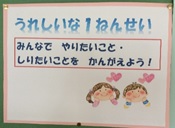 うれしいな1ねんせい
みんなで やりたいこと・
しりたいことを かんがえよう!